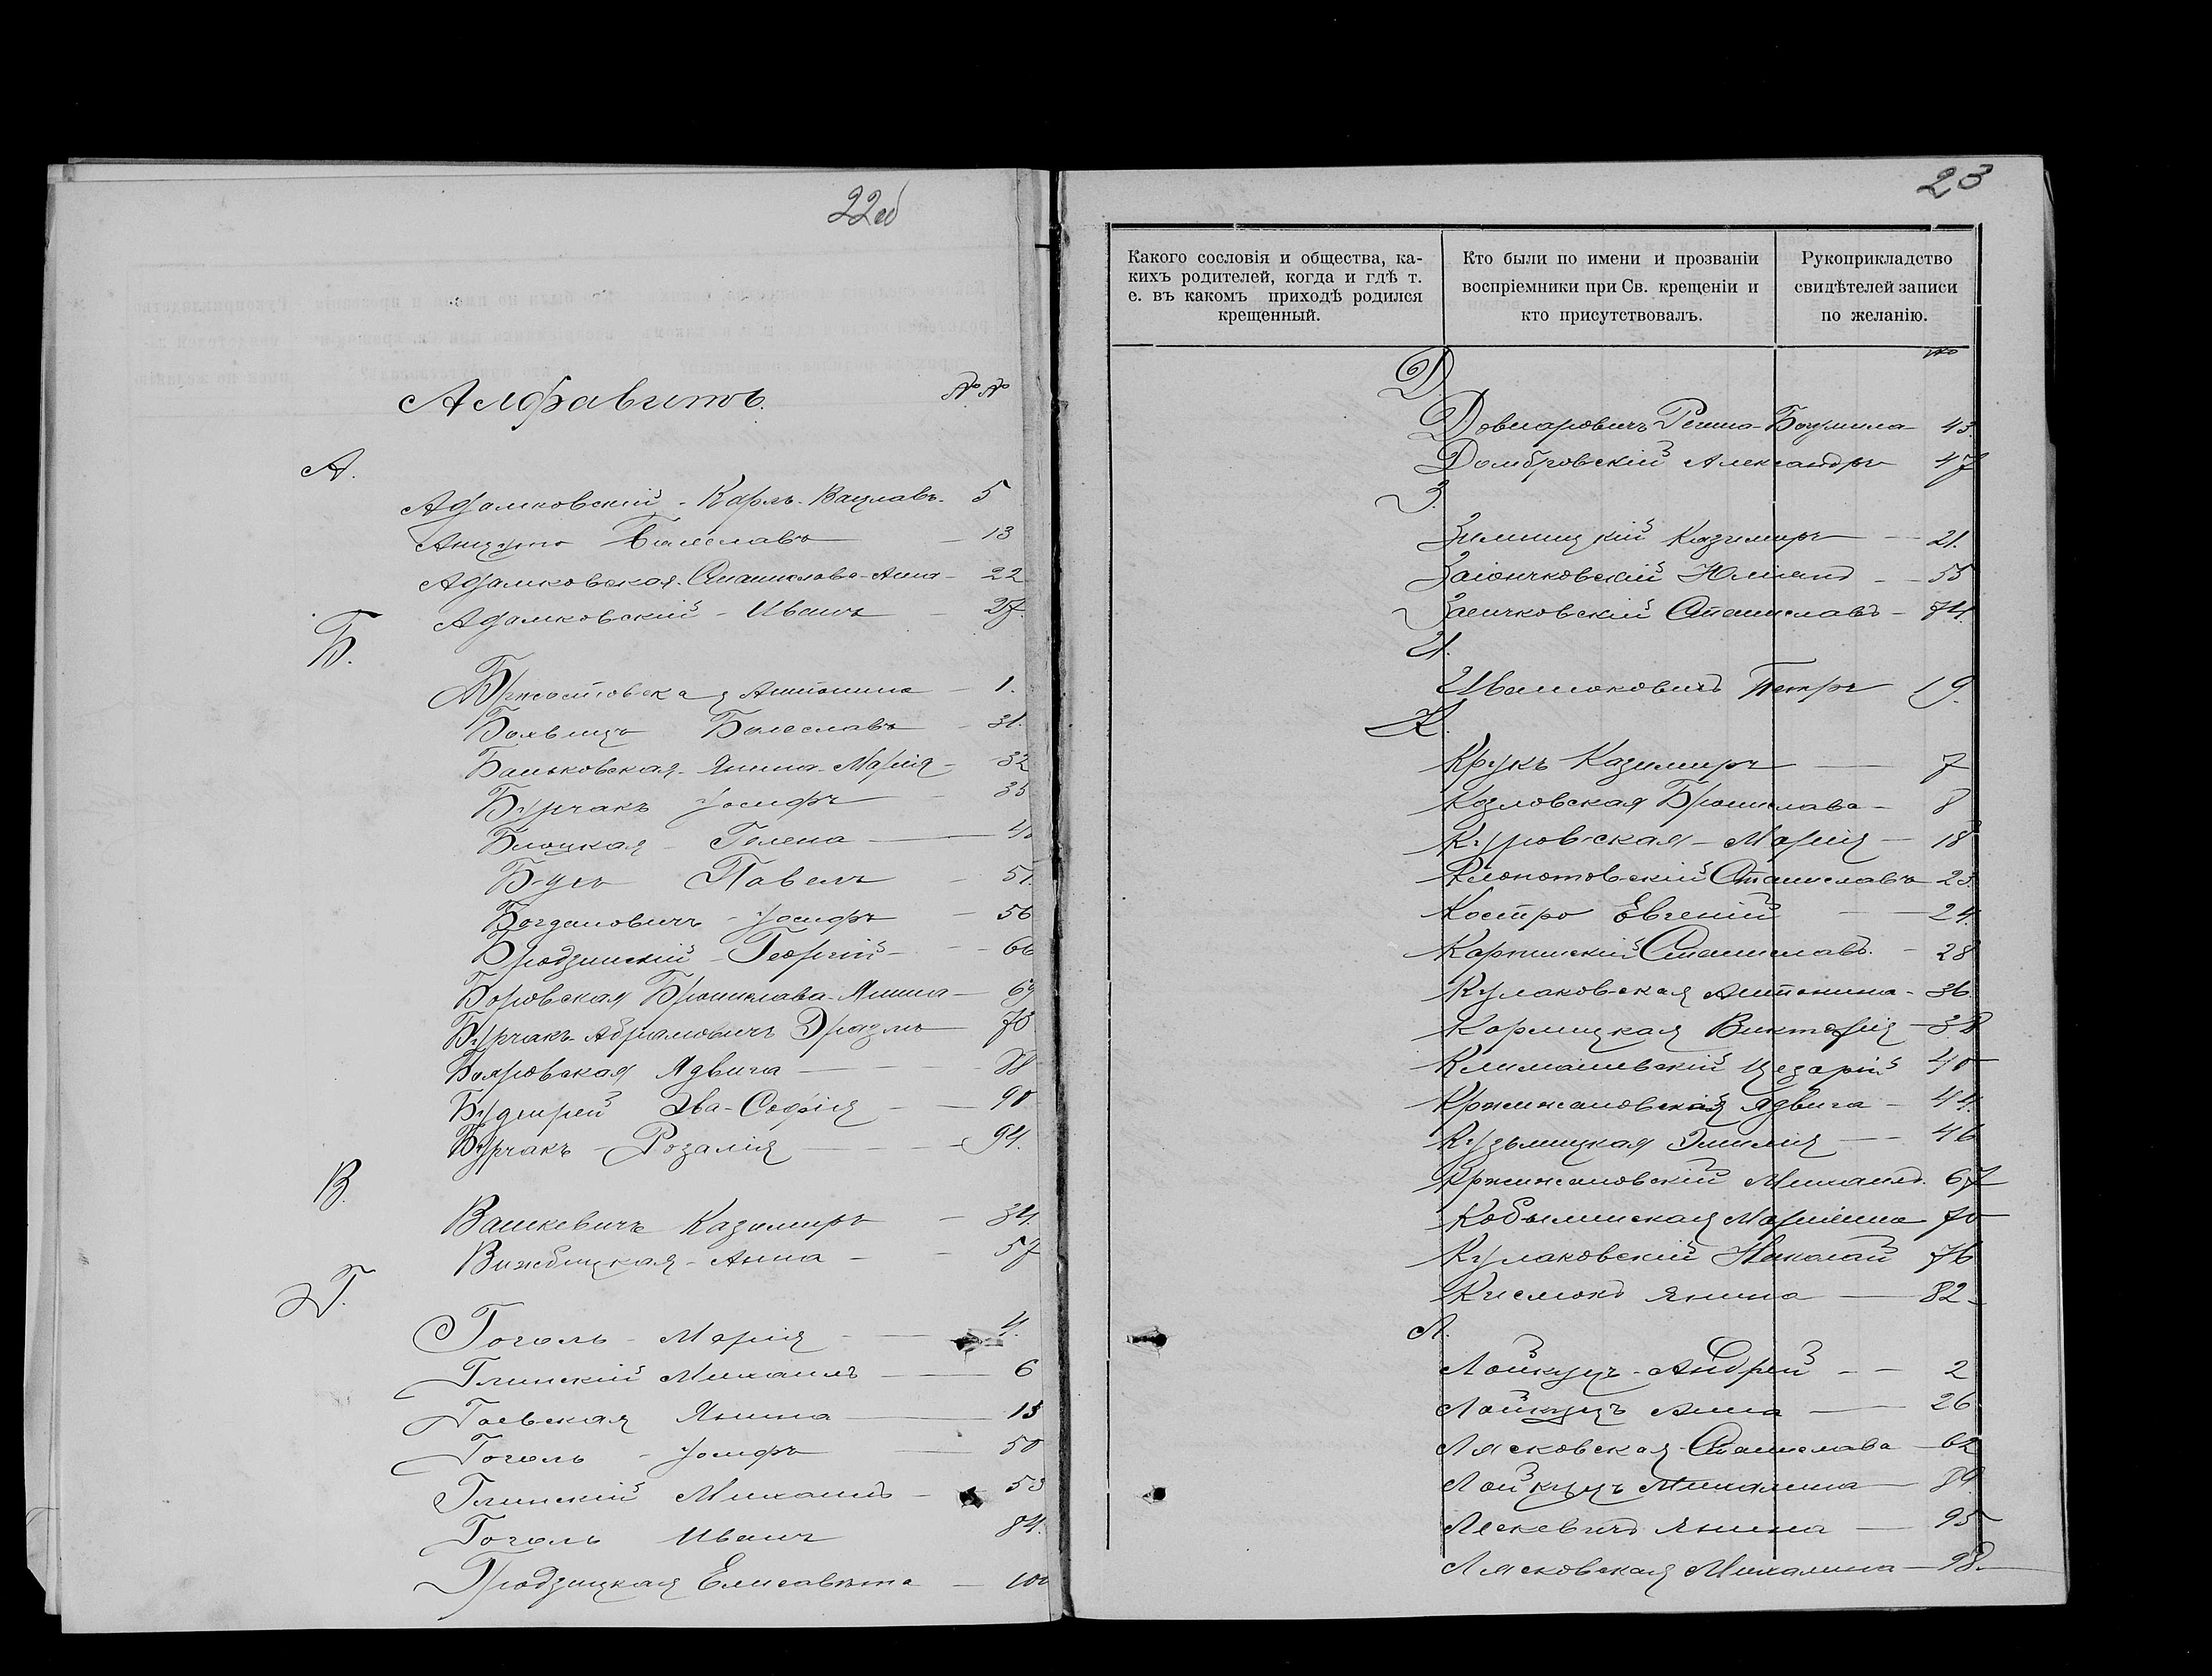 22об
Алфавитъ.
№ №
А.
Адамковскій - Карлъ-Вацлавъ - 5
Анцуто Болеславъ - 13
Адамковская - Станислава-Анна - 22
Адамковскій - Иванъ - 27.
Б.
Бржостовская Антонина - 1.
Болеславъ - 31.
Баньковская - Янина-Марія - 32
Бурчакъ Іосифъ - 35
Блоцкая - Гелена -
Павелъ - 51.
Богдановичъ - Іосифъ - 56
Бродзинскій - Георгій - 66
Боровская Бронислава-Янина - 69
Бурчакъ-Абрамовичъ Эразмъ 78
Бояровская Ядвига - 88
Ева-Софія - 90
Бурчакъ - Розалія - 94.
В.
Вашкевичъ Казимиръ - 34.
Вижеблицкая - Анна - 57
Г.
Гоголь - Марія - 4.
Глинскій Михаилъ - 6
Гаевская Янина - 15
Гоголь - Іосифъ - 50
Глинскій Михаилъ - 53
Гоголь Иванъ 84.
Гродзицкая Елисавета - 100
23
Какого сословія и общества, ка-
кихъ родителей, когда и гдѣ т.
е. въ какомъ приходѣ родился
крещенный.
Кто были по имени и прозваніи
воспріемники при Св. крещеніи и
кто присутствовалъ.
Рукоприкладство
свидѣтелей записи
по желанію.
№
Д.
Регина-Богумила 43.
Домбровскій Александръ 47
З.
Зимницкій Казимиръ - 21.
Заіончковскій Юліанъ - 55
Заенчковскій Станиславъ - 74.
И.
Ивашковичъ Петръ 19.
К.
Крукъ Казимиръ - 7
Козловская Бронислава - 8
Куровская - Марія - 18
Клопотовскій Станиславъ 23.
Костро Евгеній - 24.
Карпинскій Станиславъ. - 28
Кулаковская Антонина - 36.
Кармицкая Викторія - 38
Климашевскій Цезарій 40
Кржижановская Ядвига - 44.
Кузьмицкая Эмилія - 46
Кржижановскій Михаилъ. 67
Кобылинская Маріанна 70
Кулаковскій Николай 76
Кислюкъ Янина - 82
Л.
Лойкуцъ - Андрей - 2
Лойкуцъ Анна - 26
Лясковская Станислава - 62
Лойкуцъ Михалина - 89.
Лескевичъ Янина - 95
Лясковская Михалина - 98.